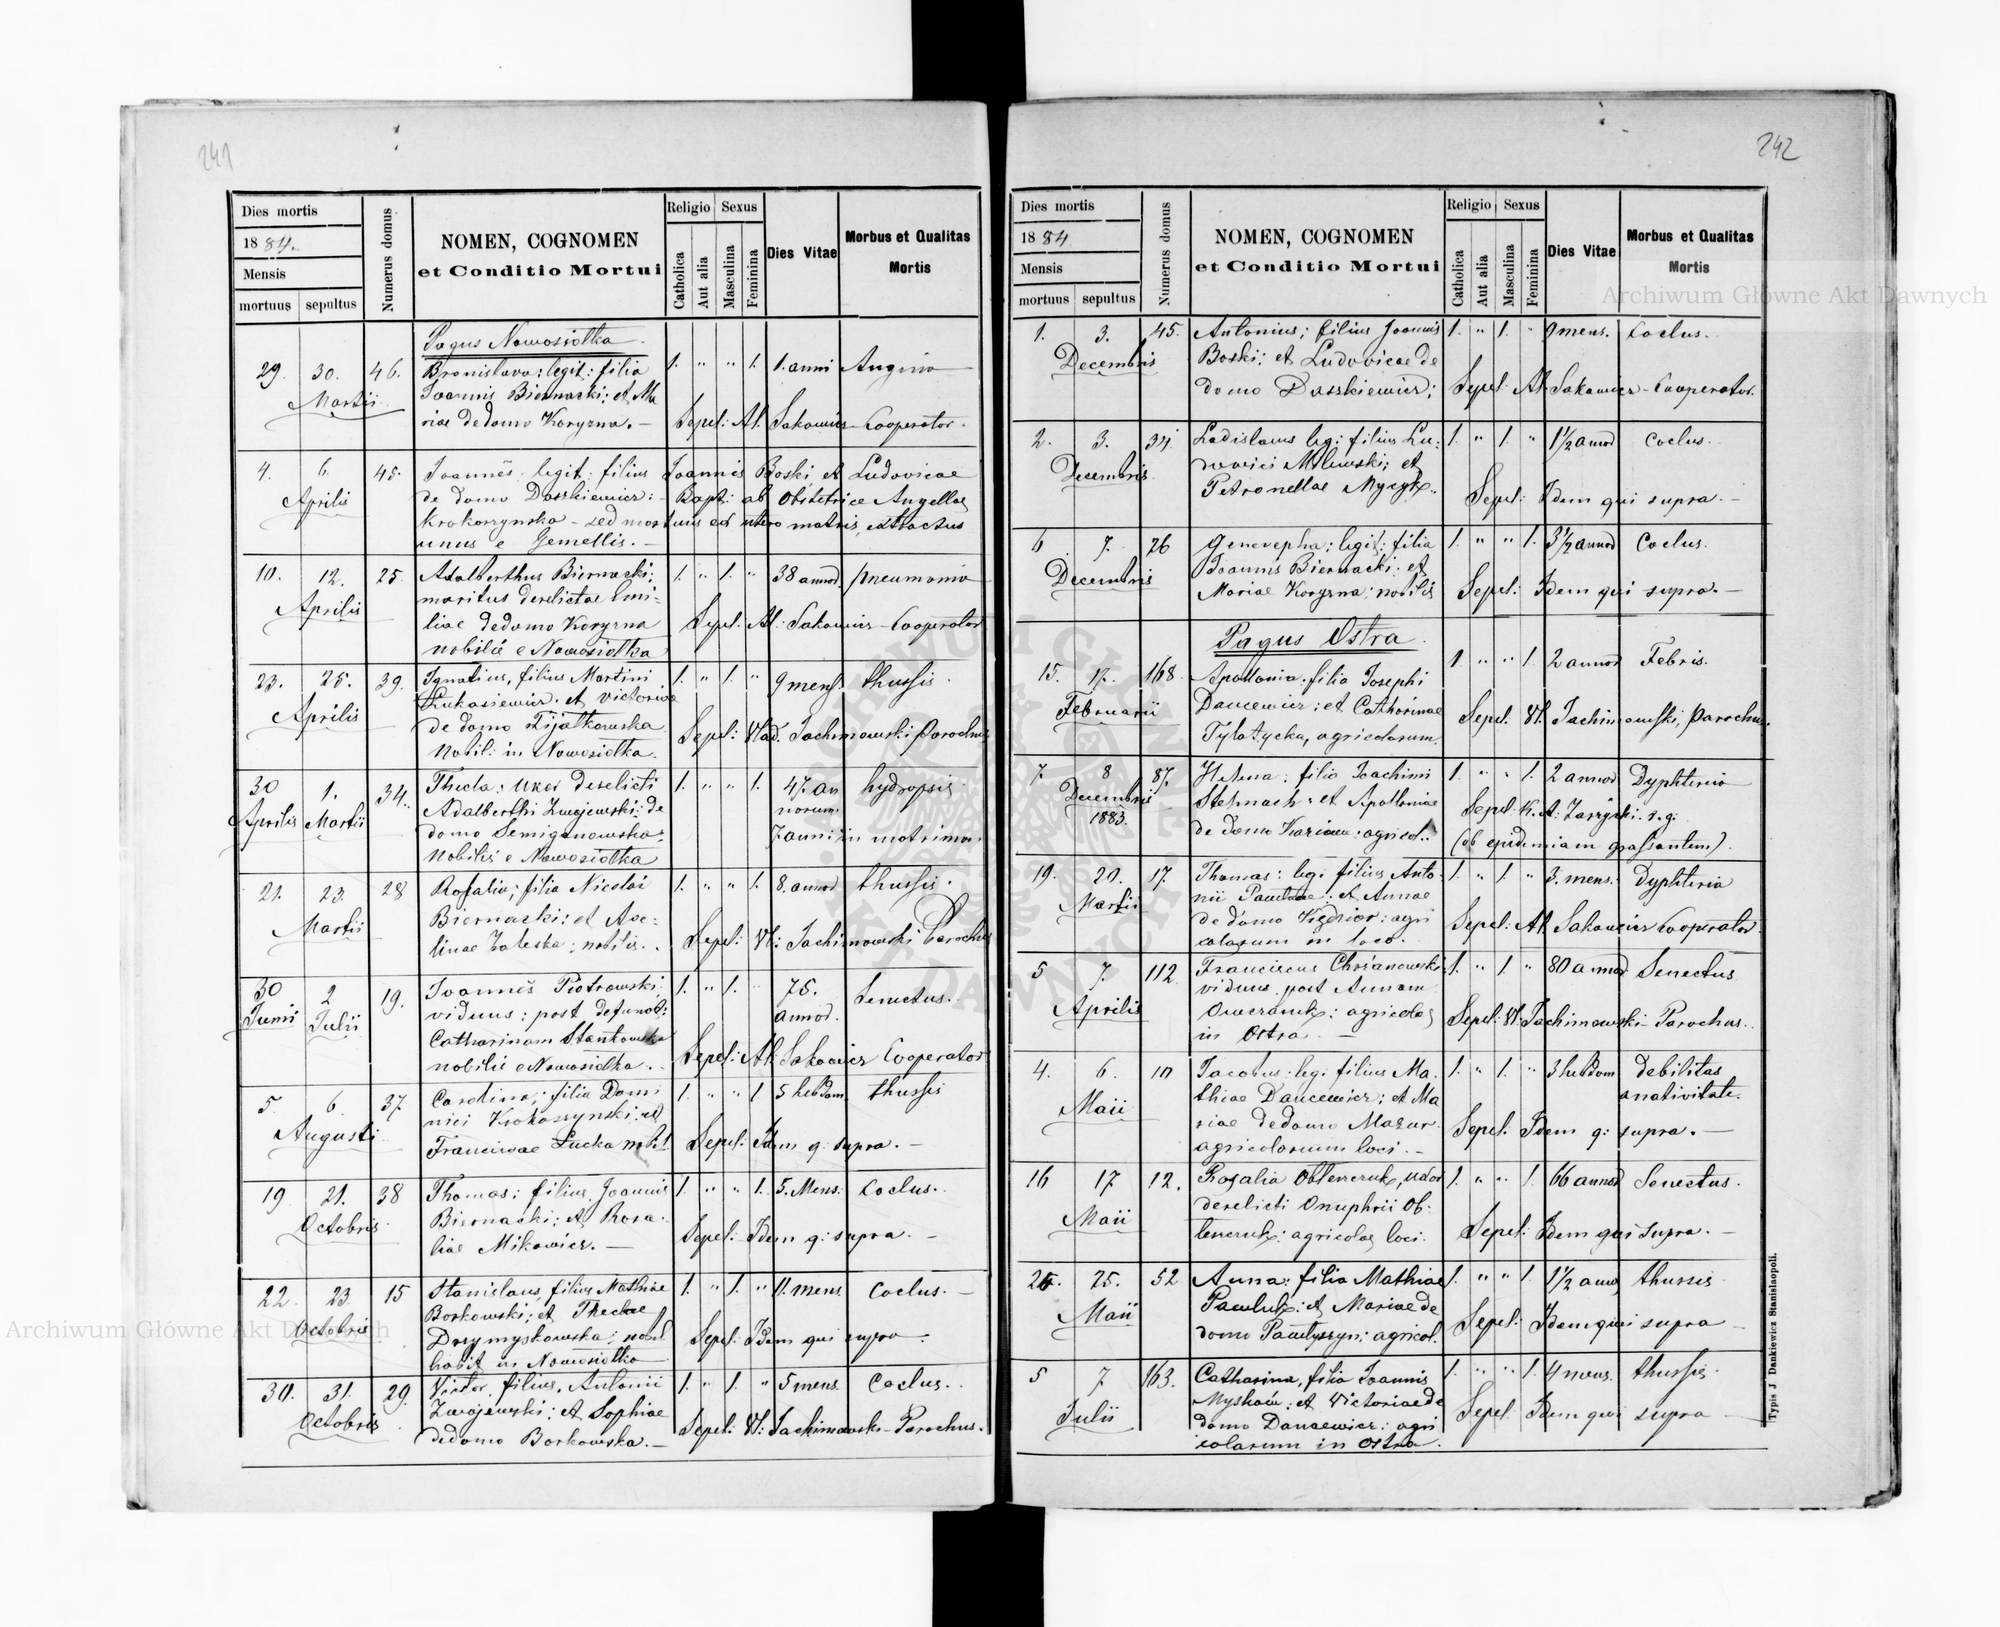 241
Dies mortis
1884.
Mensis
mortuus sepultus
Numerus domus
NOMEN, COGNOMEN
et Conditio Mortui
Religio Sexus
Catholica
Aut alia
Masculina
Feminina
Dies Vitae
Morbus et Qualitas
Mortis
Pagus Nowosiolka
29. 30. 46. Bronislava: legit: filia 1. " " 1. 1. anni Angina
Martii Joannis Biernacki: et Ma
riae de domo Koryzna. — Sepel: Al. Sakowicz Cooperator.
4. 6. 45. Joannes legit: filius Joannis Boski et Ludovicae
Aprilis de domo Daszkiewicz: Bapt: ab Obstetrice Angellae
Krokoszynska – sed mortuus ex utero matris, extractus
unus e Gemellis. —
10. 12. 25. Adalberthus Biernacki; 1. " 1. " 38 annor pneumonia
Aprilis maritus derelictae Emi-
liae de domo Koryzna Sepel. Al: Sakowicz – Cooperator
nobilis e Nowosiolka
23. 25. 39. Ignatius, filius Martini 1. " 1. " 9 mens. thussis.
Aprilis Lukasiewicz. et Victoriae
de domo Fijalkowska Sepel: Vlad. Jachimowski Parochus
Nobil: in Nowosiolka.
30 1. 34. Thecla: uxor derelicti 1. " " 1. 47. an hydropsis
Aprilis Martii Adalberthi Zwojewski: de norum
domo Semiganowska 7 anni in matrimon.
Nobilis e Nowosiolka
21. 23. 28 Rosalia; filia Nicolai 1. " " 1. 8. annor thussis.
Martii Biernacki: et Ave-
linae Zaleska: nobilis. Sepel: Vl: Jachimowski Parochus
30 2 19. Joannes Piotrowski: 1. " 1. " 75. Senectus.
Junii Julii viduus: post defunct: annor.
Catharinam Stankowska Sepel: Al. Sakowicz Cooperator
nobilis e Nowosiolka.
5. 6. 37 Carolina; filia Domi 1. " " 1 5 hebdom. thussis
Augusti nici Krokoszynski: et
Franciscae Lucka nobil. Sepel: Idem q: supra. —
19 21. 38 Thomas: filius Joannis 1. " " 1. 5. Mens. Coclus.
Octobris Biernacki; et Roza-
liae Mikowicz. — Sepel: Idem q: supra. —
22. 23. 15 Stanislaus, filius Mathiae 1. " 1. " 11. mens Coclus. —
Octobris Borkowski; et Theclae
Dorymyskowska; nobil Sepel: Idem qui supra —
habit in Nowosiolka
30. 31. 29. Victor, filius Antonii 1. " 1. " 5 mens. Coclus.
Octobris Zwojewski; et Sophiae
de domo Borkowska. — Sepel. Vl: Jachimowski – Parochus.
242
Dies mortis
1884
Mensis
mortuus sepultus
Numerus domus
NOMEN, COGNOMEN
et Conditio Mortui
Religio Sexus
Catholica
Aut alia
Masculina
Feminina
Dies Vitae
Morbus et Qualitas
Mortis
1. 3. 45. Antonius; filius Joannis 1. " 1. " 9 mens. Coclus.
Decembris Boski: et Ludovicae de
domo Daszkiewicz; Sepel: Al Sakowicz – Cooperator.
2. 3. 34. Ladislaus leg: filius Lu- 1. " 1. " 1 1/2 annor Coclus.
Decembris dovici Milewski; et
Petronellae Mycyk. Sepel: Idem qui supra. —
6 7. 26 Genevepha; legit: filia 1. " " 1. 3 1/2 annor Coclus.
Decembris Joannis Biernacki: et
Mariae Koryzna: nobilis Sepel: Idem qui supra. —
Pagus Ostra.
15. 17. 168. Apollonia. filia Josephi 1. " " 1. 2 annor Febris.
Februarii Dancewicz: et Catharinae Sepel. Vl. Jachimowski, Parochus.
Tylotycka, agricolarum.
7. 8 87. Helena: filia Joachimi 1. " " 1. 2 annor Dyphteria
Decembris Stelmach: et Apolloniae Sepel. K. A. Zarzycki. r. g:
1883. agricol: (ob epidemiam grassantem).
19. 20. 17. Thomas: leg: filius Anto- 1. " 1. " 3. mens. Dyphteria
Martii nii et Annae
de domo Kiędzior: agri Sepel: Al Sakowicz Cooperator
colarum in loco.
5 7. 112. Franciscus Chrzanowski 1. " 1. " 80 annor Senectus
Aprilis viduus post Annam
agricola Sepel: Vl: Jachimowski – Parochus.
in Ostra —
4. 6. 10 Jacobus: leg: filius Ma- 1. " 1. " 3 hebdom Debilitas
Maii thiae Dancewicz; et Ma a nativitate.
riae de domo Mazur. Sepel. Idem q: supra. —
agricolarum loci. —
16 17 12. Rosalia Obleszczuk, uxor 1. " " 1. 66 annor Senectus.
Maii derelicti Onuphrii Ob-
leszczuk: agricolae loci. Sepel: Idem qui supra. —
25. 25. 52 Anna: filia Mathiae 1. " " 1. 1 1/2 ann thussis
Maii Pawluk: et Mariae de
domo Pawlyszyn: agricol. Sepel: Idem qui supra —
5 7 163. Catharina, filia Joannis 1. " " 1. 4 mens. thussis.
Julii Myskow; et Victoriae de
domo Dancewicz: agri Sepel Idem qui supra —
colarum in Ostra.
Typis J Dankiewicz Stanislaopoli.
Archiwum Główne Akt Dawnych
Archiwum Główne Akt Dawnych
ARCHIWUM GŁÓWNE AKT DAWNYCH